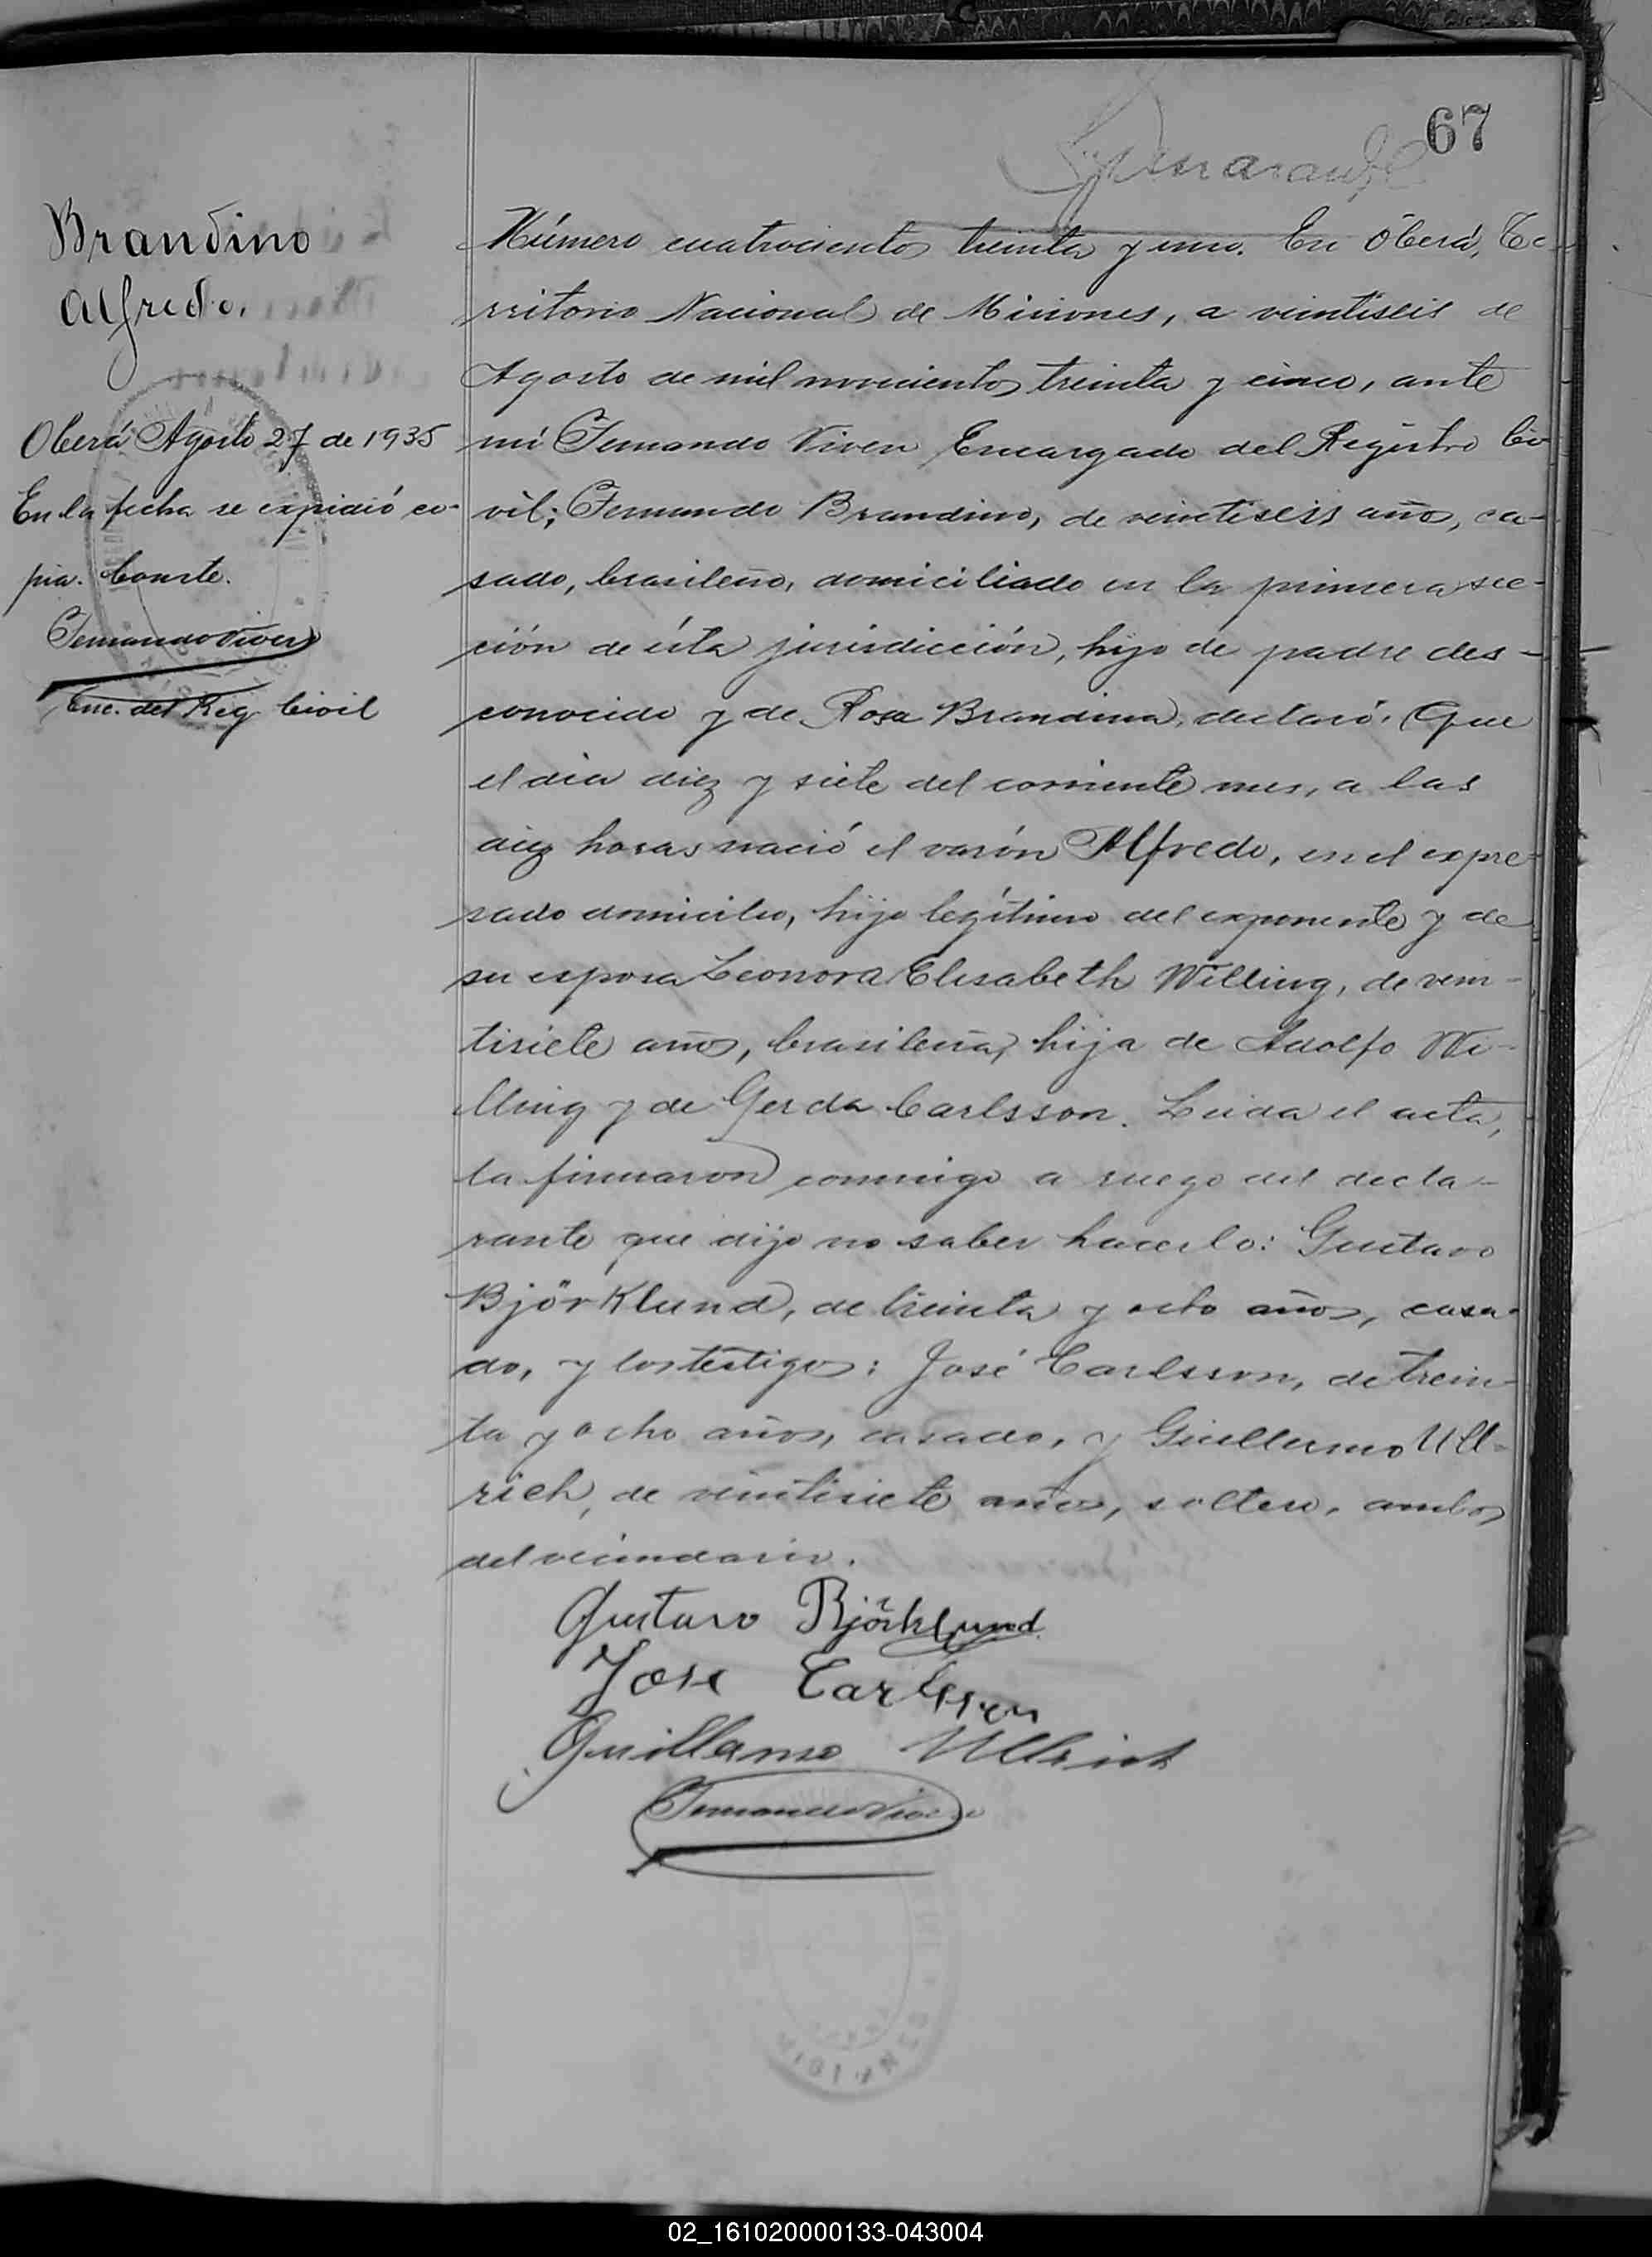 67
Brandino
Alfredo.
Oberá Agosto 27 de 1935
En la fecha se expidió co-
pia. Conste.
Fernando Vivers
Enc. del Reg. Civil
Número cuatrocientos treinta y uno. En Oberá, Te-
rritorio Nacional de Misiones, a veintiseis de
Agosto de mil novecientos treinta y cinco, ante
mí Fernando Vivers Encargado del Registro Ci-
vil; Fernando Brandino, de veintiseis años, ca-
sado, brasileño, domiciliado en la primera sec-
ción de ésta jurisdicción, hijo de padre des-
conocido y de Rosa Brandina, declaró: Que
el día diez y siete del corriente mes, a las
diez horas nació el varón Alfredo, en el expre-
sado domicilio, hijo legítimo del exponente y de
su esposa Leonora Elisabeth Willing, de vein-
tisiete años, brasileña, hija de Adolfo Wi-
lling y de Gerda Carlsson. Leida el acta,
la firmaron conmigo a ruego del decla-
rante que dijo no saber hacerlo: Gustavo
Björklund, de treinta y ocho años, casa-
do, y los testigos: José Carlsson, de trein-
ta y ocho años, casado, y Guillermo Ull-
rich, de veintisiete años, soltero, ambos
del vecindario.
Gustavo Björklund
Jose Carlsson
Guillermo Ullrich
Fernando Vivers
02_161020000133-043004